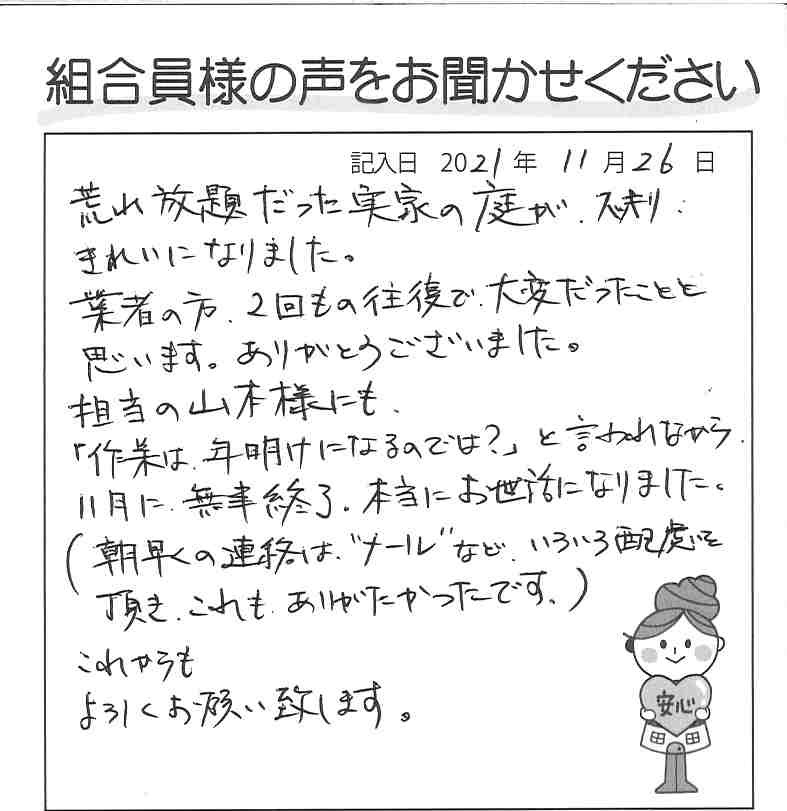 組合員様の声をお聞かせください
記入日 2021年 11月26日
荒れ放題だった実家の庭が、スッキリ
きれいになりました。
業者の方、2回もの往復で、大変だったことと
思います。ありがとうございました。
担当の山本様にも、
「作業は、年明けになるのでは?」と言われながら、
11月に、無事終了。本当にお世話になりました。
(朝早くの連絡は、"メール"など、いろいろ配慮を
頂き、これも、ありがたかったです。)
これからも
よろしくお願い致します。
安心